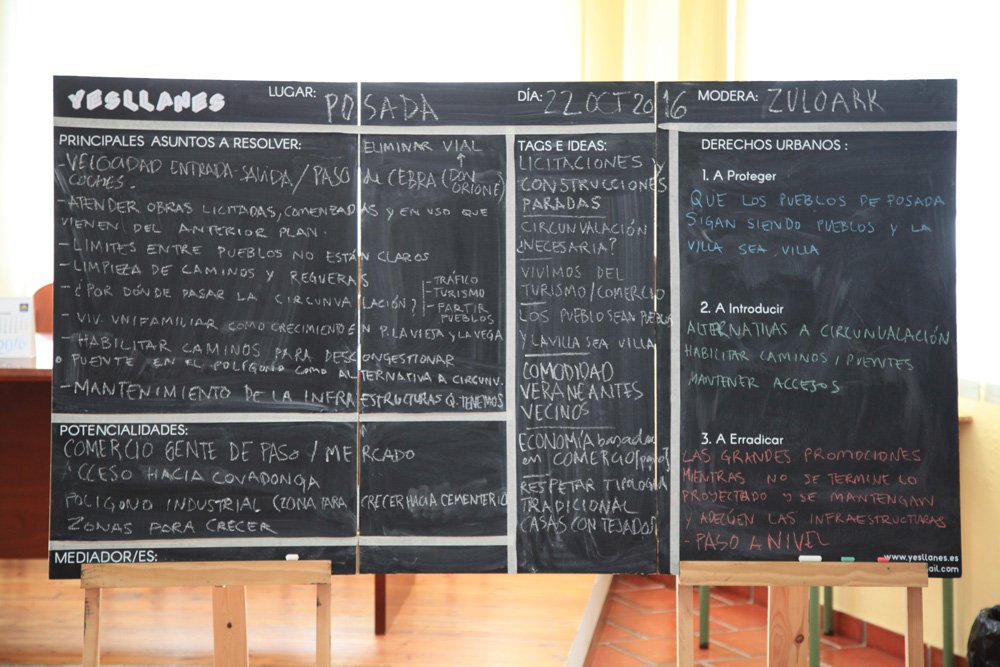 YESLLANES
LUGAR: POSADA
DÍA: 22 OCT 2016
MODERA: ZULOARK
PRINCIPALES ASUNTOS A RESOLVER:
ELIMINAR VIAL
- VELOCIDAD ENTRADA-SALIDA / PASO de CEBRA (DON ORIONE)
COCHES.
- ATENDER OBRAS LICITADAS, COMENZADAS Y EN USO QUE
VIENEN DEL ANTERIOR PLAN.
- LIMITES ENTRE PUEBLOS NO ESTÁN CLAROS
- LIMPIEZA DE CAMINOS Y REGUERAS
- ¿POR DÓNDE PASAR LA CIRCUNVALACIÓN?
- TRÁFICO
- TURISMO
- PARTIR PUEBLOS
- VIV. UNIFAMILIAR COMO CRECIMIENTO EN P. LA VIEJA Y LA VEGA
- HABILITAR CAMINOS PARA DESCONGESTIONAR
PUENTE EN EL POLÍGONO COMO ALTERNATIVA A CIRCUNV.
- MANTENIMIENTO DE LA INFRAESTRUCTURAS Q. TENEMOS
POTENCIALIDADES:
COMERCIO GENTE DE PASO / MERCADO
ACCESO HACIA COVADONGA
POLIGONO INDUSTRIAL (ZONA PARA CRECER HACIA CEMENTERIO
ZONAS PARA CRECER
MEDIADOR/ES:
TAGS E IDEAS:
LICITACIONES Y
CONSTRUCCIONES
PARADAS
CIRCUNVALACIÓN
¿NECESARIA?
VIVIMOS DEL
TURISMO/COMERCIO
LOS PUEBLO SEAN PUEBLOS
Y LA VILLA SEA VILLA
COMODIDAD
VERANEANTES
VECINOS
ECONOMÍA basada
en COMERCIO (paso)
RESPETAR TIPOLOGÍA
TRADICIONAL
CASAS CON TEJADOS
DERECHOS URBANOS :
1. A Proteger
QUE LOS PUEBLOS DE POSADA
SIGAN SIENDO PUEBLOS Y LA
VILLA SEA VILLA
2. A Introducir
ALTERNATIVAS A CIRCUNVALACIÓN
HABILITAR CAMINOS, PUENTES
MANTENER ACCESOS
3. A Erradicar
LAS GRANDES PROMOCIONES
MIENTRAS NO SE TERMINE LO
PROYECTADO Y SE MANTENGAN
Y ADECÚEN LAS INFRAESTRUCTURAS
- PASO A NIVEL
www.yesllanes.es
mail.com